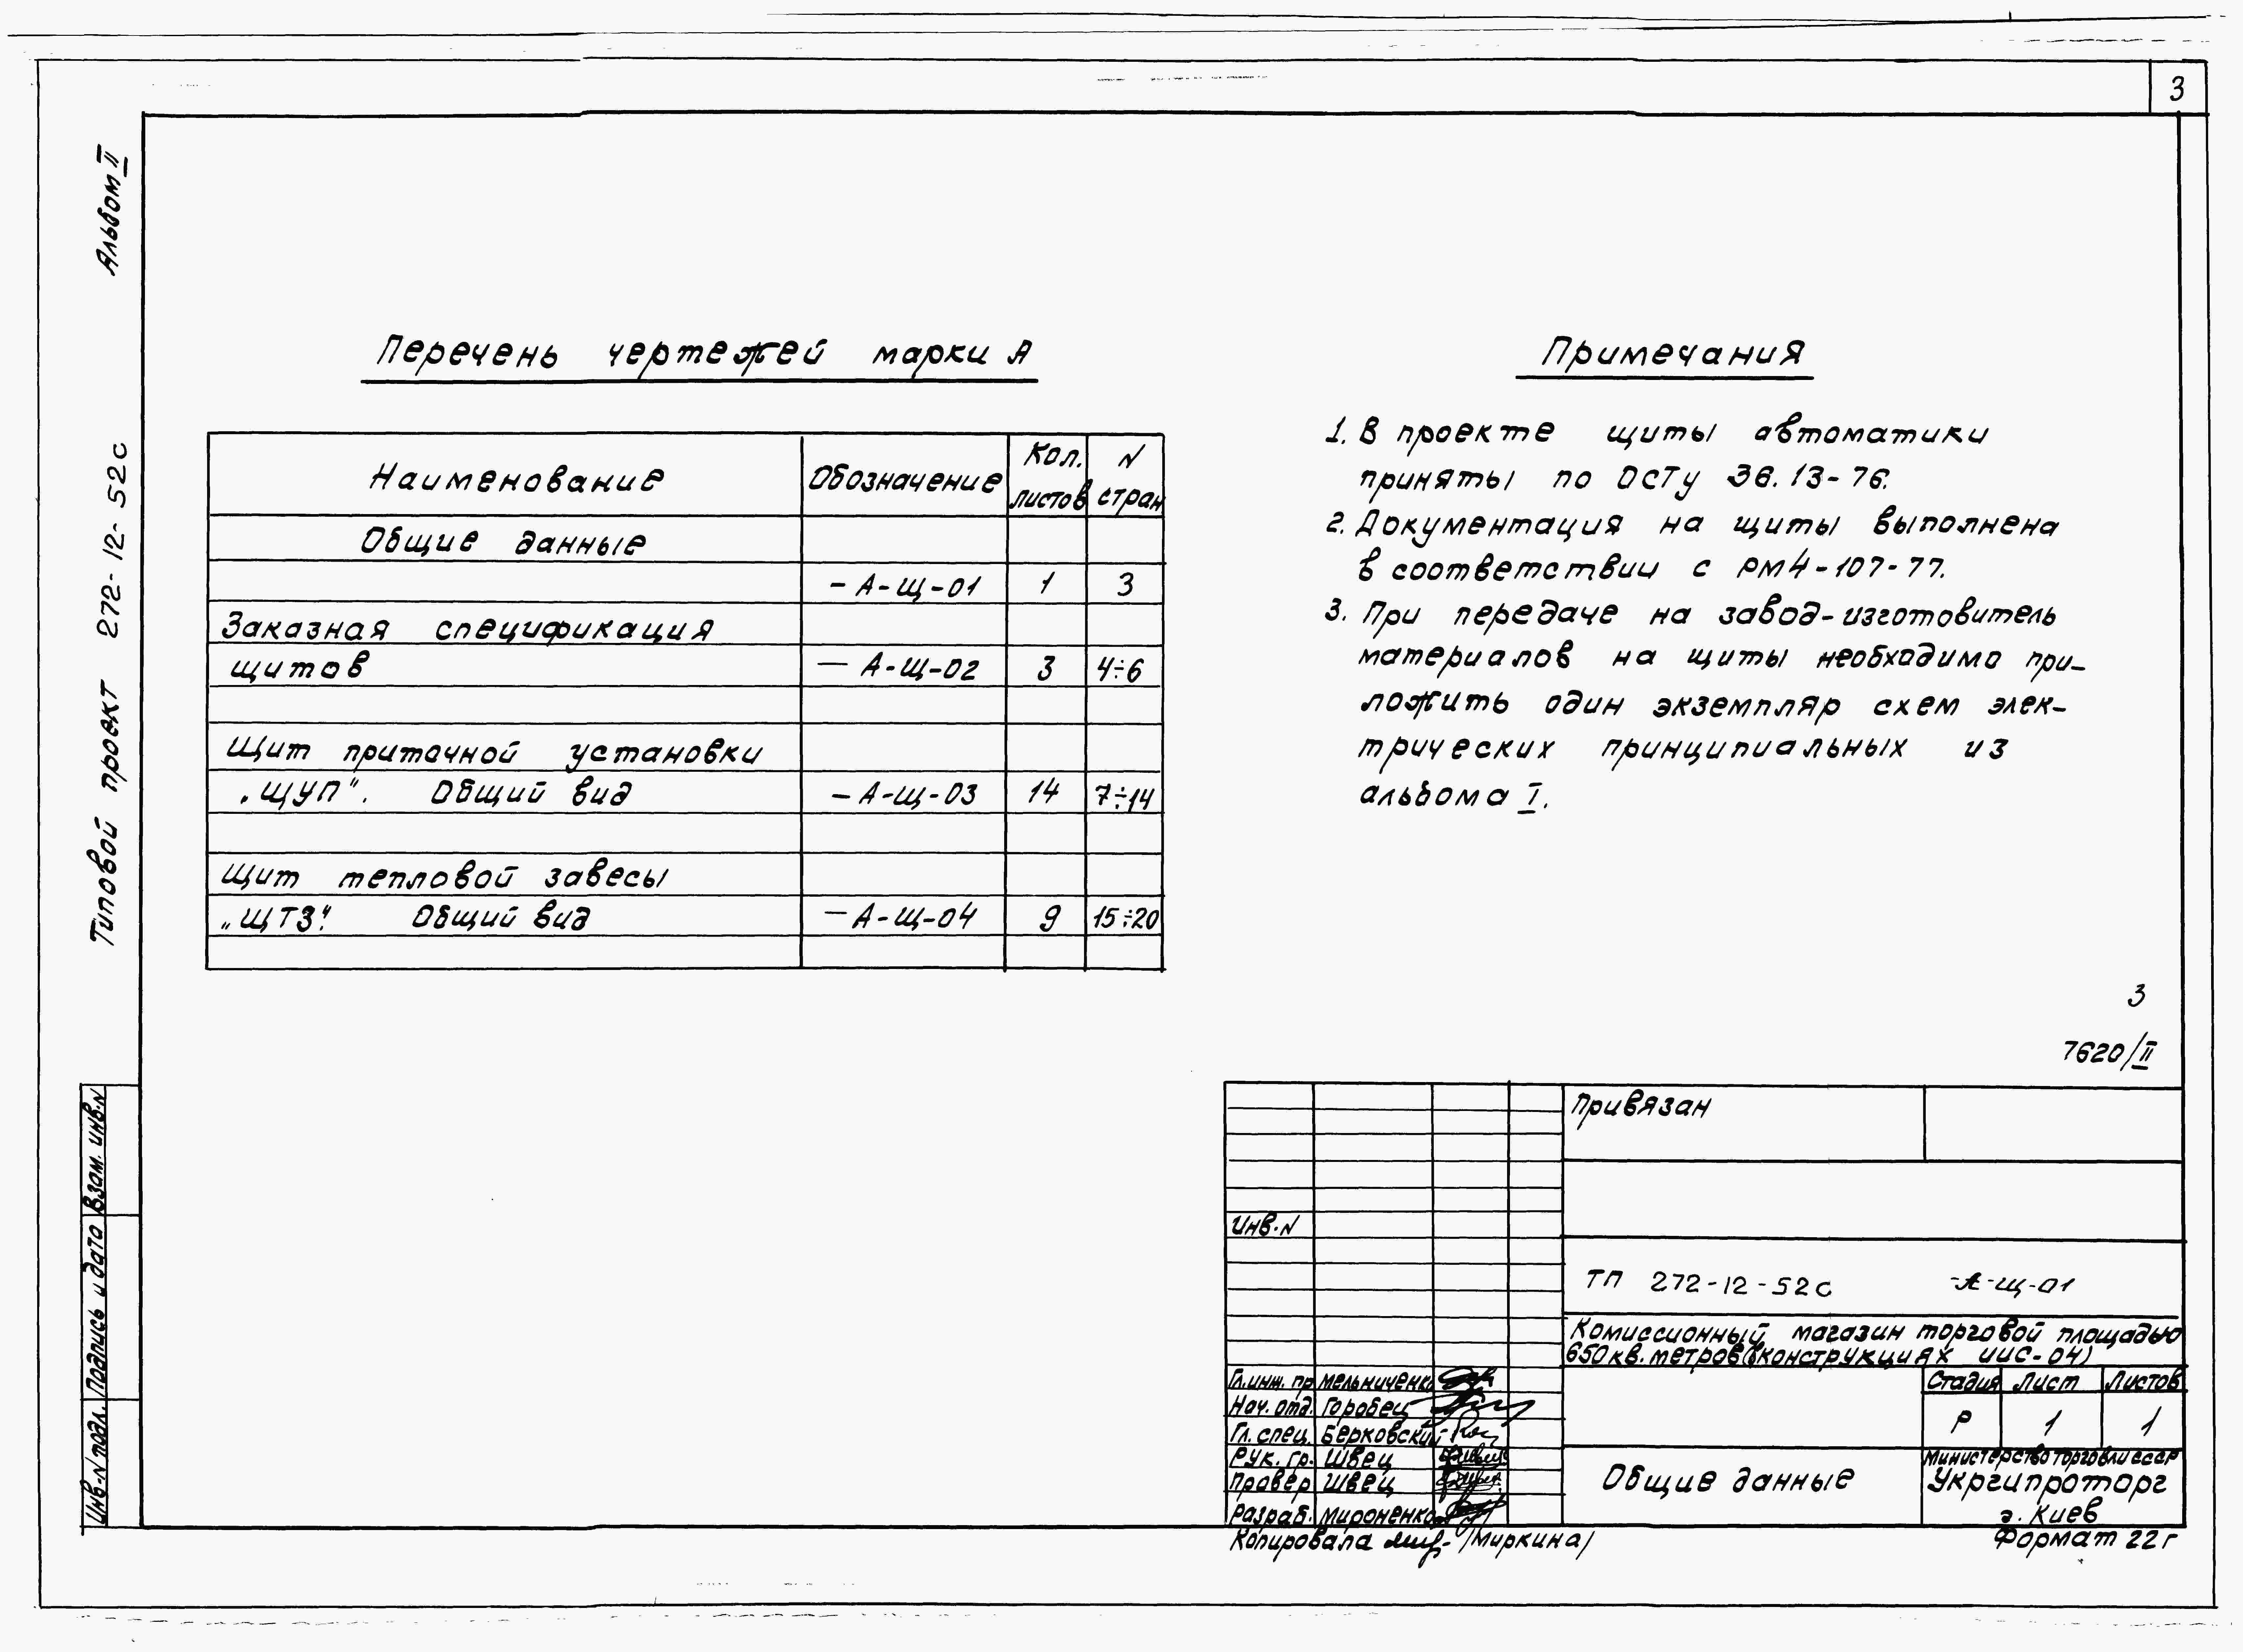 3
Альбом II
Типовой проект 272-12-52с
Перечень чертежей марки А
Наименование Обозначение Кол. листов N стран
Общие данные
- А-Щ-01 1 3
Заказная спецификация
щитов — А-Щ-02 3 4÷6
Щит приточной установки
„ЩУП". Общий вид — А-Щ-03 14 7÷14
Щит тепловой завесы
„ЩТЗ". Общий вид — А-Щ-04 9 15÷20
Примечания
1. В проекте щиты автоматики
приняты по ОСТу 36.13-76.
2. Документация на щиты выполнена
в соответствии с РМ4-107-77.
3. При передаче на завод-изготовитель
материалов на щиты необходимо при-
ложить один экземпляр схем элек-
трических принципиальных из
альбома I.
3
7620/II
Привязан
Инв.N
ТП 272-12-52с -А-Щ-01
Комиссионный магазин торговой площадью
650 кв. метров (в конструкциях ИИС-04)
Гл.инж.пр Мельниченко
Нач. отд. Горобец
Гл. спец. Берковский
Рук. гр. Швец
Провер Швец
Разраб. Мироненко
Стадия Лист Листов
Р 1 1
Общие данные
Министерство торговли СССР
Укргипроторг
г. Киев
Копировала (Миркина)
Формат 22г
Инв.N подл. Подпись и дата Взам. инв.N